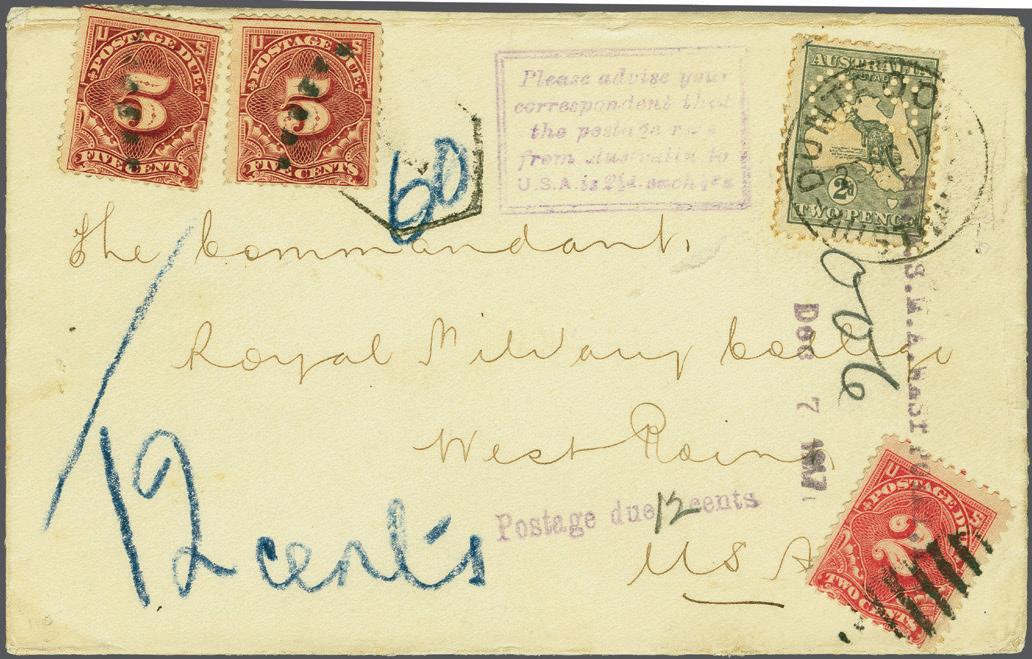 U S
POSTAGE DUE
5
FIVE CENTS
U S
POSTAGE DUE
5
FIVE CENTS
Please advise your
correspondent that
the postage rate
from Australia to
U.S.A. is 2½d. each ½oz
AUSTRALIA
POSTAGE
2d
TWO PENCE
60
The Commandant,
Royal Military College
West Point
U S A
12 cents
Postage due 12 cents
Dec 7 1917
U.S.M.A. West Point
U S
POSTAGE DUE
2
TWO CENTS